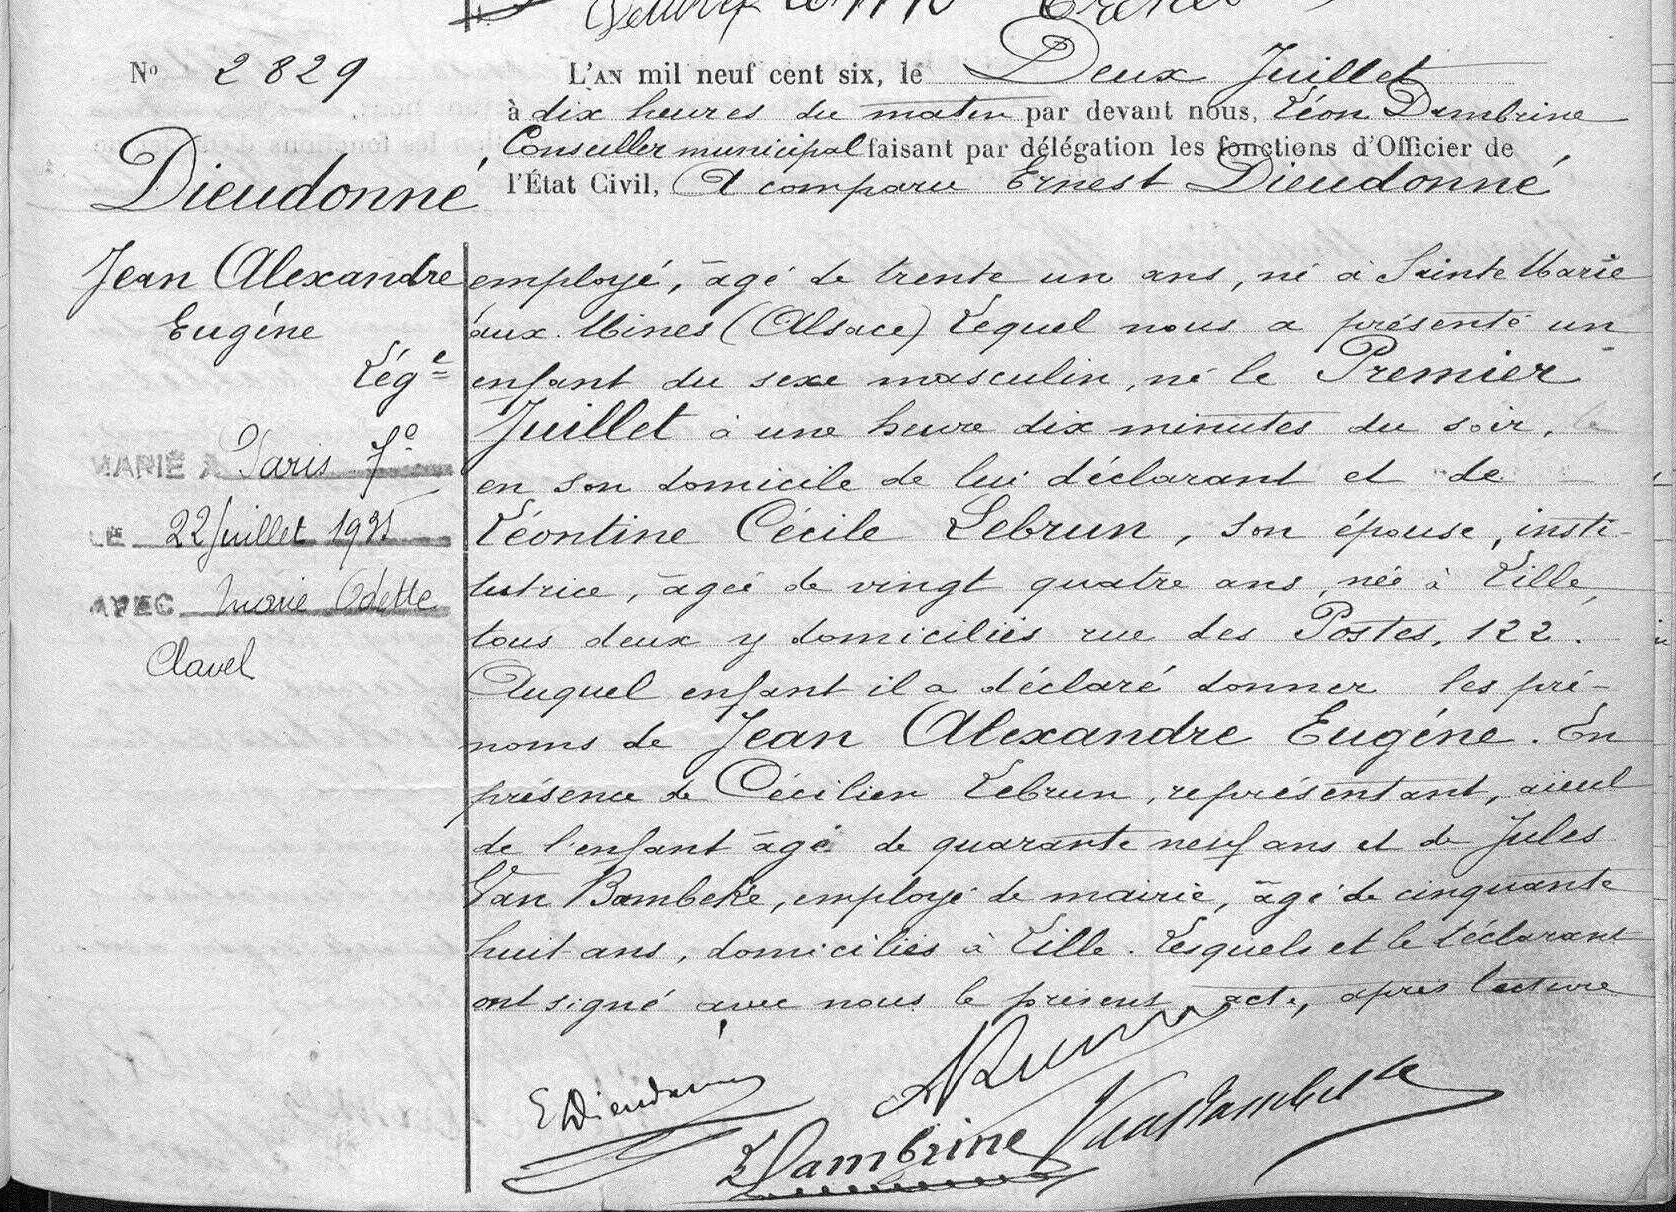 Nº 2829
Dieudonné
Jean Alexandre
Eugéne
Légᵉ
MARIÉ A Paris 7º
LE 22 Juillet 1931
AVEC Marie Odette
Clavel
L'AN mil neuf cent six, le Deux Juillet
à dix heures du matin par devant nous, Léon Dambrine
Conseiller municipal faisant par délégation les fonctions d'Officier de
l'État Civil, A comparu Ernest Dieudonné
employé, âgé de trente un ans, né à Sainte Marie
aux Mines (Alsace) Lequel nous a présenté un
enfant du sexe masculin, né le Premier
Juillet à une heure dix minutes du soir,
en son domicile de lui déclarant et de
Léontine Cécile Lebrun, son épouse, insti-
tutrice, âgée de vingt quatre ans, née à Lille,
tous deux y domiciliés rue des Postes, 122.
Auquel enfant il a déclaré donner les pré-
noms de Jean Alexandre Eugéne. En
présence de Cécilien Lebrun, représentant, aïeul
de l'enfant âgé de quarante neuf ans et de Jules
Van Bambeke, employé de mairie, âgé de cinquante
huit ans, domiciliés à Lille. Lesquels et le déclarant
ont signé avec nous le présent acte, après lecture
E Dieudonné
L Dambrine
VanBambeke